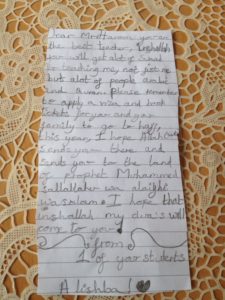 Dear Mrs Hanna you are
the best teacher, Inshallah
you will get alot of
for teaching may not just me
but alot of people arabic
and Please remember
to apply a visa and book
tickets for you and your
family to go to hajj
this year, I hope Allah
sends you there and
sends you to the land
of prophet Muhammed
Sallallahu wa alaighi
wasalam. I hope that
inshallah my dua's will
come to you
from
1 of your students
Alishba!